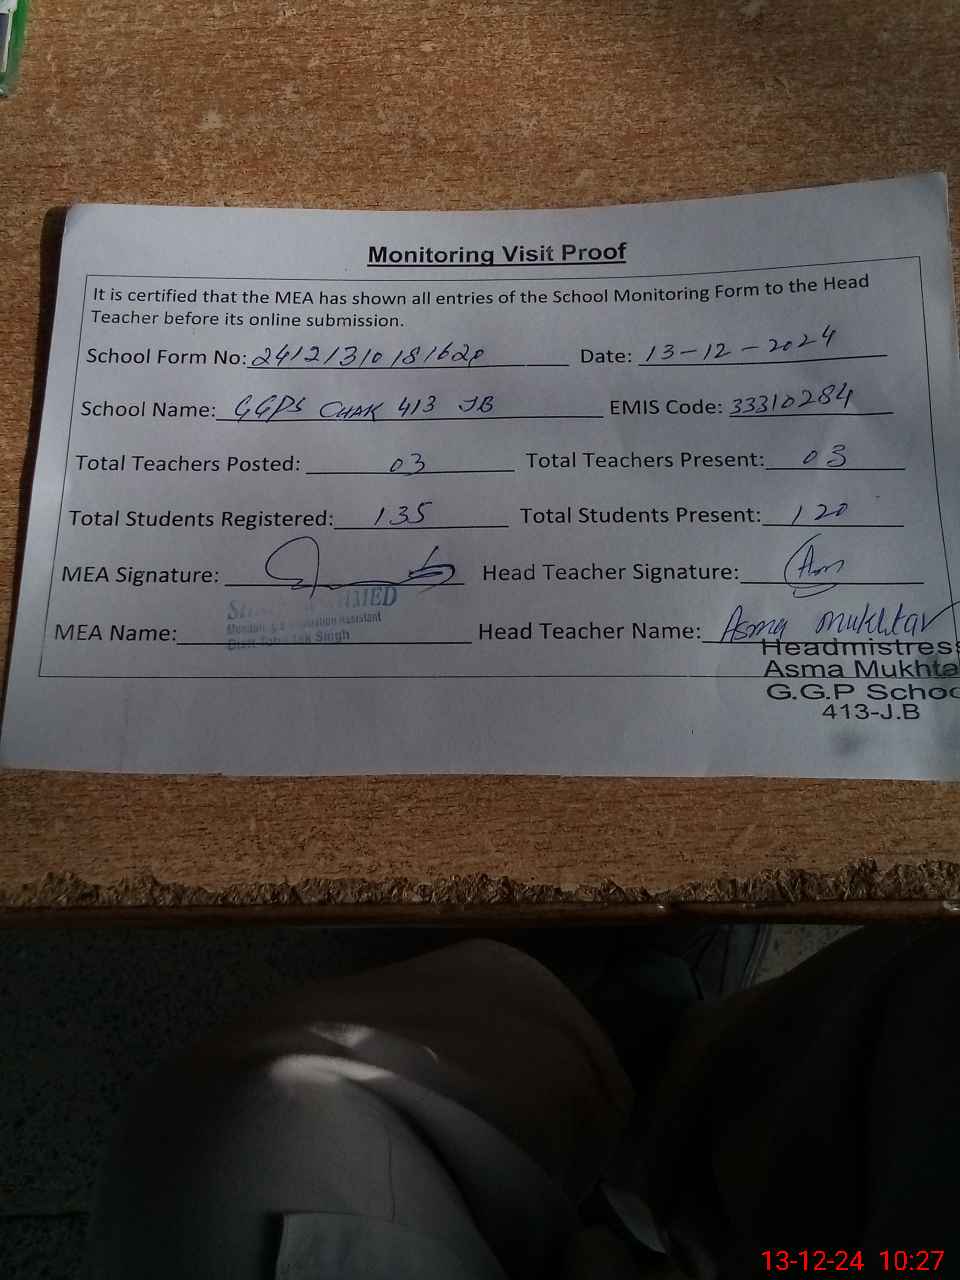 Monitoring Visit Proof
It is certified that the MEA has shown all entries of the School Monitoring Form to the Head
Teacher before its online submission.
School Form No: 24121310181620 Date: 13-12-2024
School Name: GGPS CHAK 413 JB EMIS Code: 33310284
Total Teachers Posted: 03 Total Teachers Present: 03
Total Students Registered: 135 Total Students Present: 120
MEA Signature: Head Teacher Signature: Asm
MEA Name: Head Teacher Name: Asma Mukhtar
Assistant
Singh
Headmistress
Asma Mukhta
G.G.P Schoo
413-J.B
13-12-24 10:27